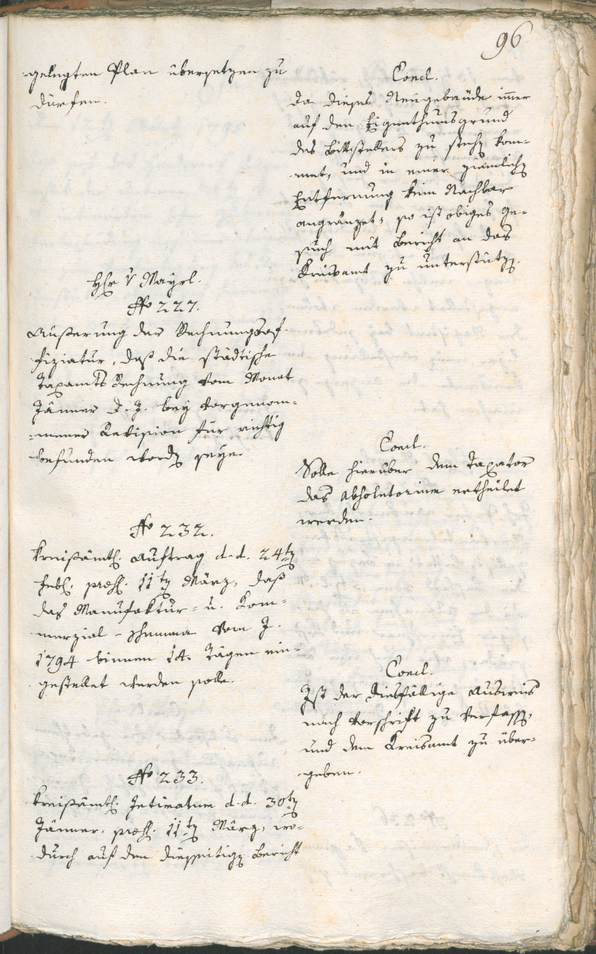 96
gelegten Plan übersetzen zu
dürfen.
Concl.
da dieses Neugebäude imer
auf den Eigenthumsgrund
des Bittstellers zu stehen kom-
met, und in einer ziemlichen
Entfernung keim Nachbar
angränzet; so ist obiges Ge-
such mit Bericht an das
Kreisamt zu unterstützen.
Hr v Mayrl.
No 227.
Äußerung der Rechnungsof-
fiziatur, daß die städtische
Taxamts Rechnung vom Monat
Jänner d. J. bey vorgenom-
mener Revision für richtig
befunden worden seye.
Concl.
Solle hierüber dem Taxator
das Absolutorium ertheilet
werden.
No 232.
Kreisämtl. Auftrag d. d. 24ten
Febr. præs. 11ten März, daß
das Manufaktur- u. Kom-
merzial-Schemma vom J.
1794 binnen 14 Tägen ein-
gestellet werden solle.
Concl.
Ist der diesfällige Ausweis
nach Vorschrift zu verfassen,
und dem Kreisamt zu über-
geben.
No 233.
Kreisämtl. Intimatum d. d. 30ten
Jänner, præs. 11ten März, wo-
durch auf den diesseitigen Bericht